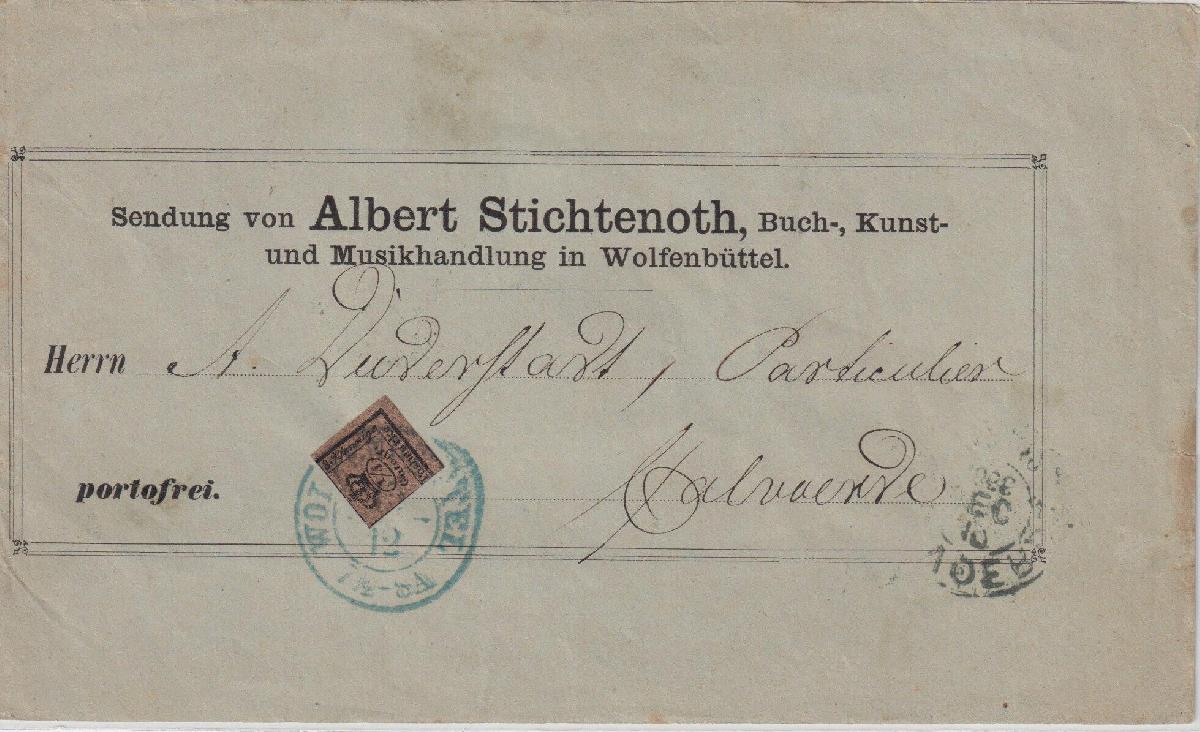 Sendung von Albert Stichtenoth, Buch-, Kunst-
und Musikhandlung in Wolfenbüttel.
Herrn A. Duderstadt, Particulier
portofrei.
Calvoerde
12